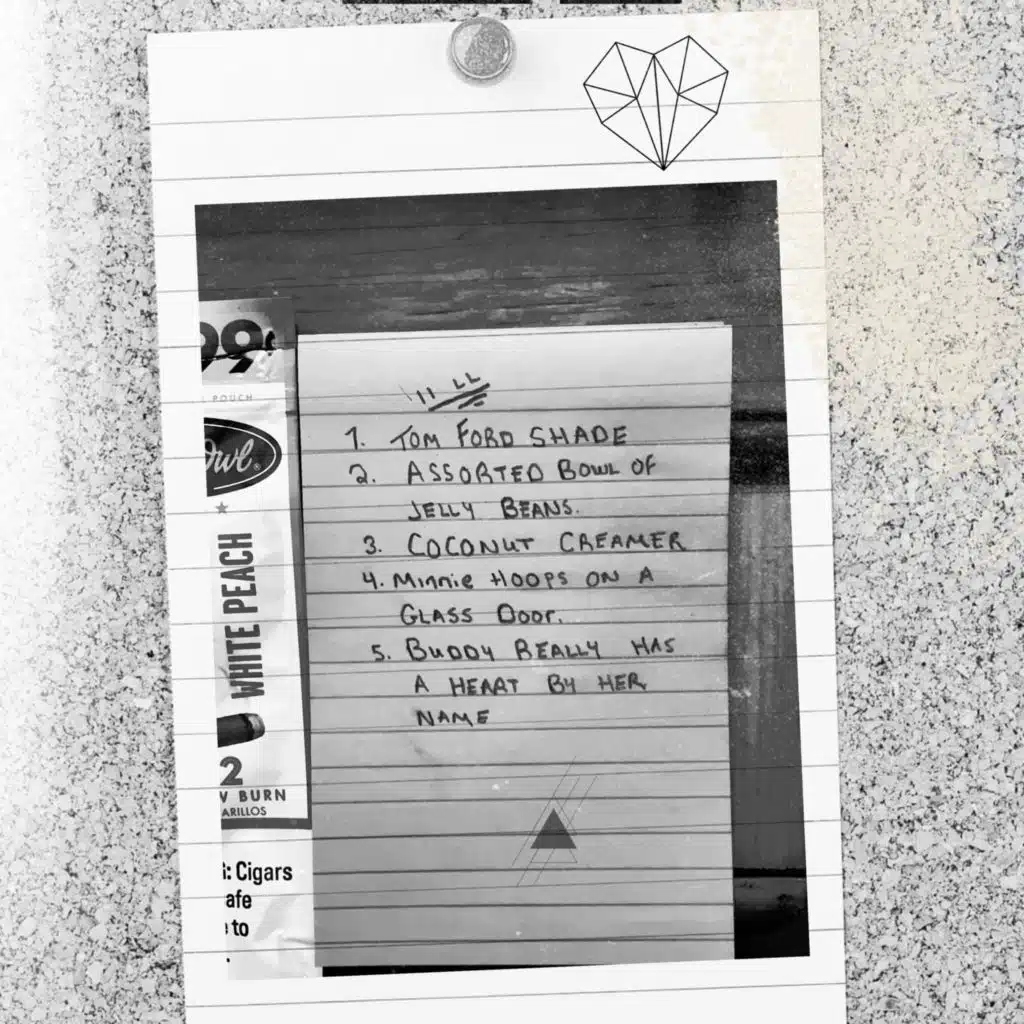 99¢
POUCH
Owl®
WHITE PEACH
2
W BURN
ARILLOS
: Cigars
afe
to
11 LL
1. TOM FORD SHADE
2. ASSORTED BOWL OF
JELLY BEANS.
3. COCONUT CREAMER
4. Minnie HOOPS ON A
GLASS DOOr.
5. BUDDY REALLY HAS
A HEART BY HER
NAME